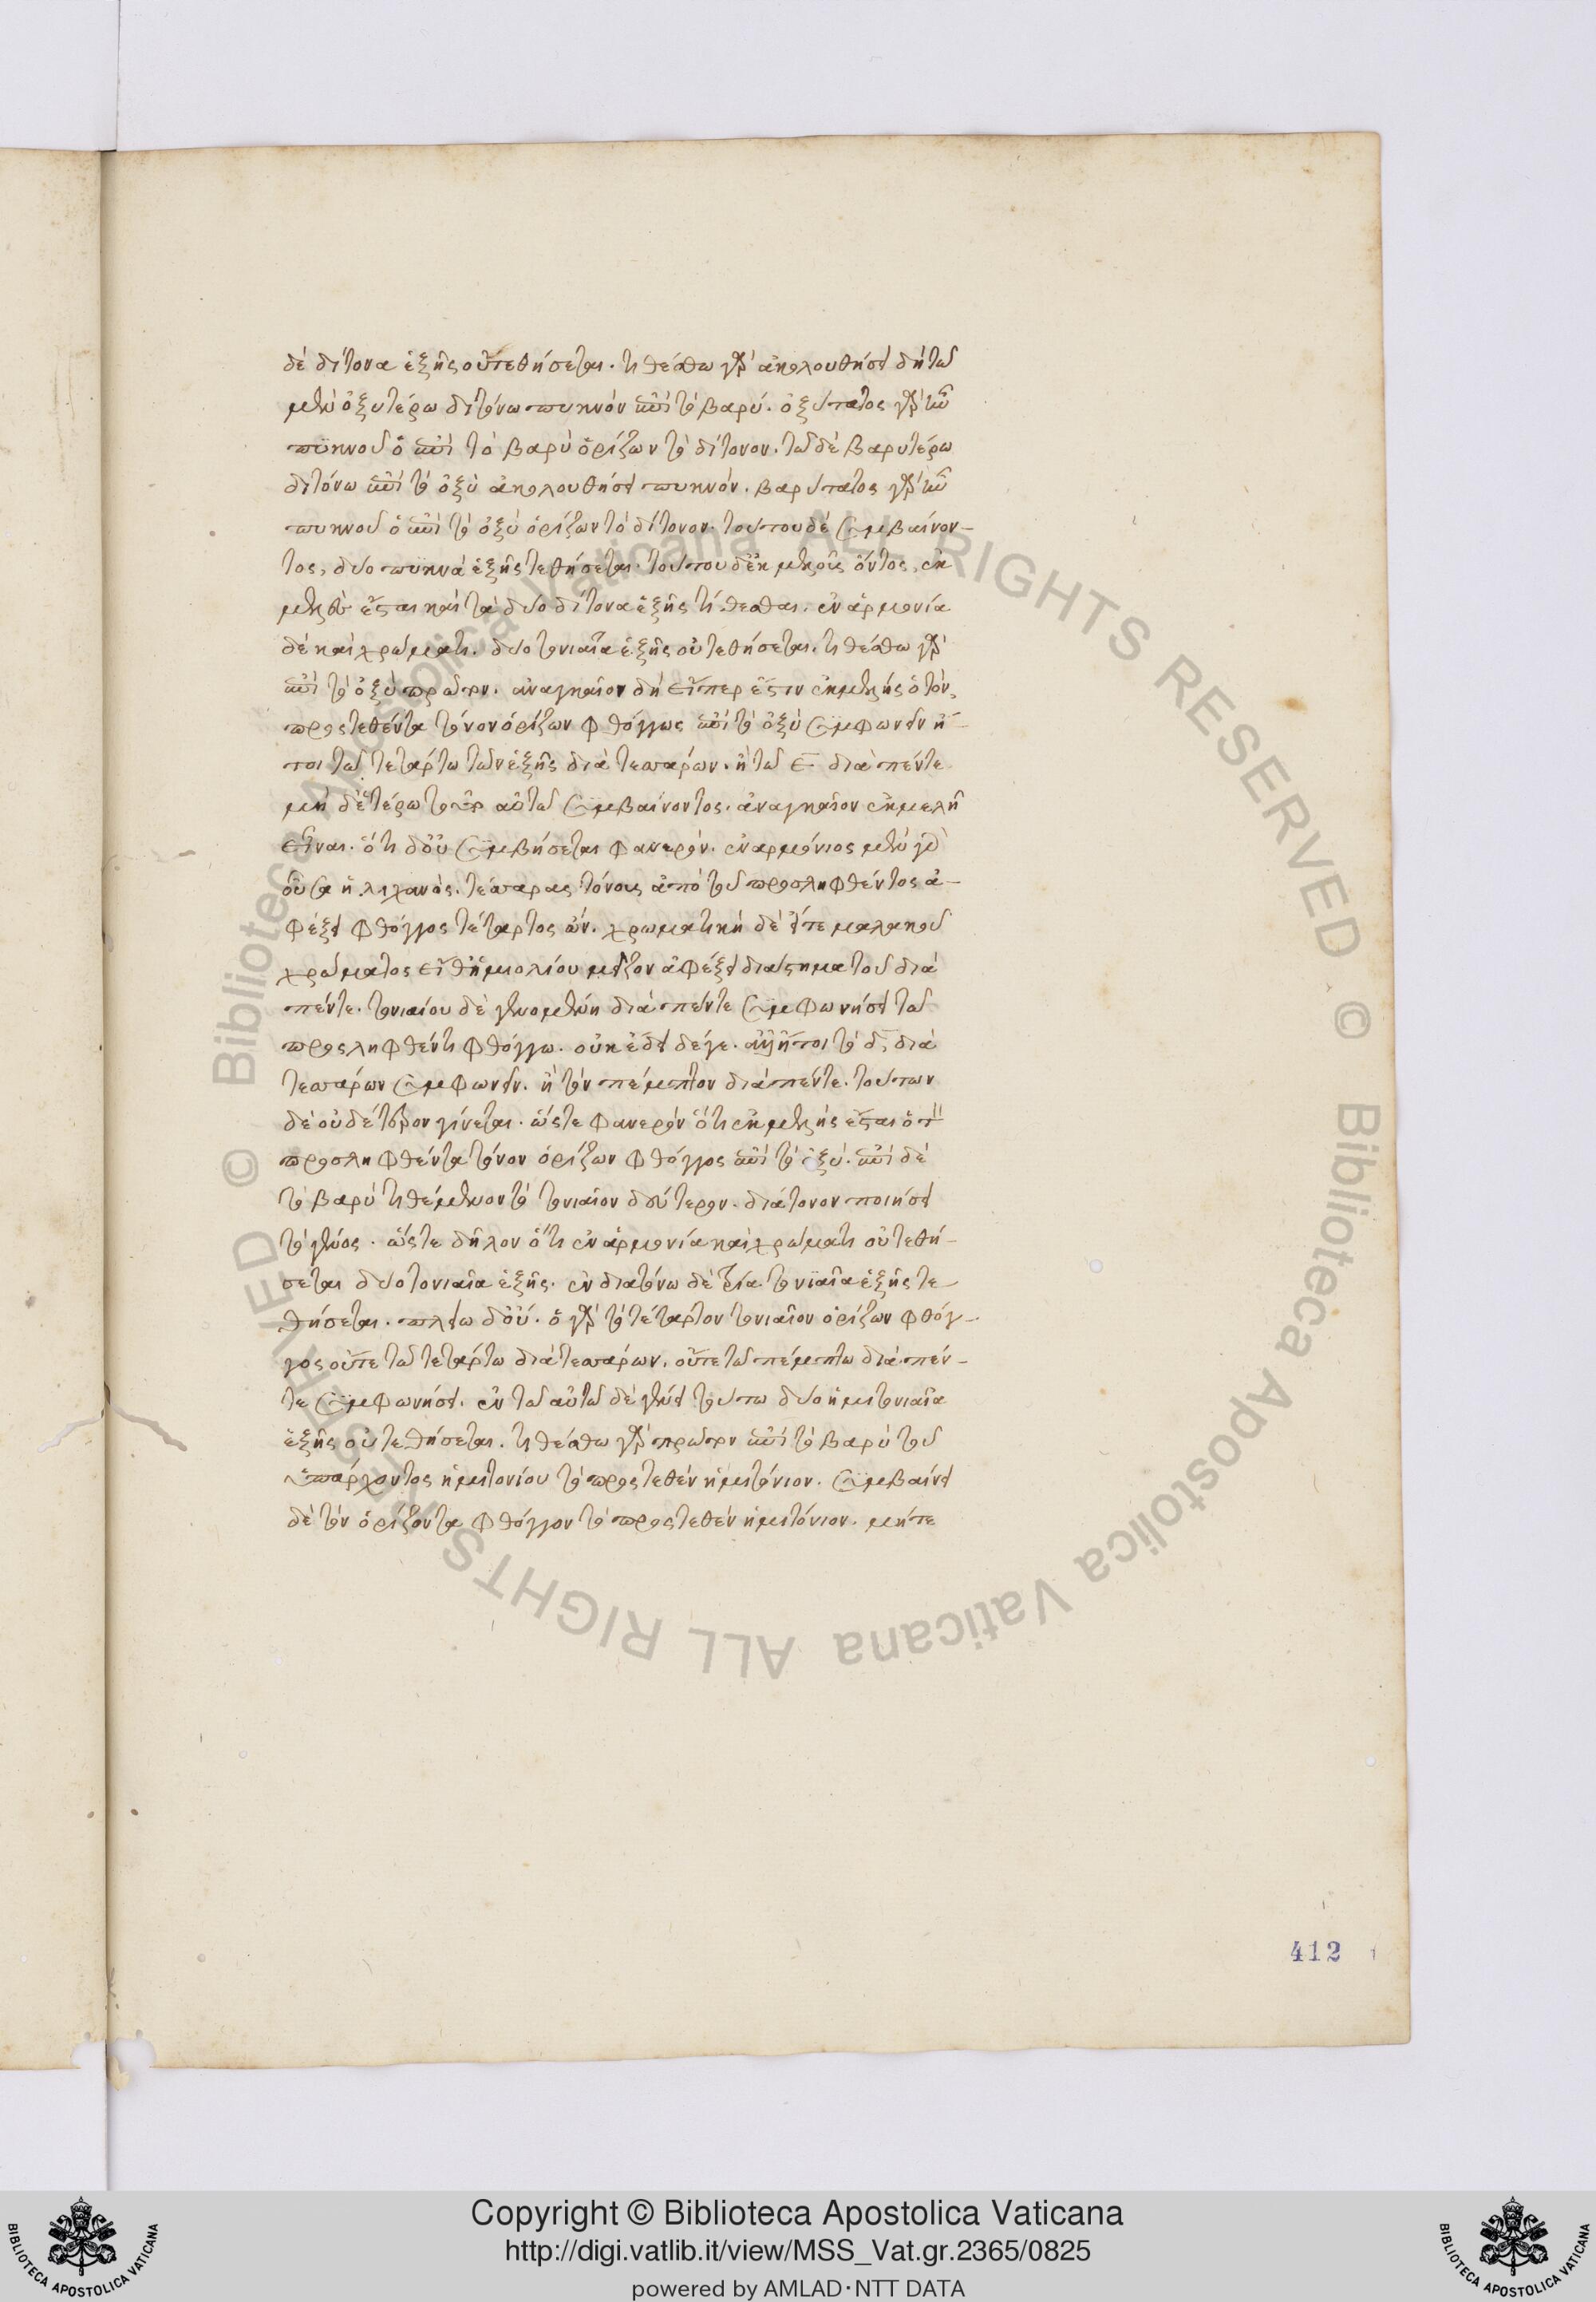 δὲ δίτονα ἑξῆς οὔτεθήσεται. τιθέσθω γὰρ ἀκολουθήσει δὴ τῶ
μὲν ὀξυτέρω διτόνω πυκνὸν ἐπὶ τὸ βαρύ. ὀξύτατος γὰρ ἦν
πϋκνοῦ ὁ ἐπὶ τὸ βαρὺ ὁρίζων τὸ δίτονον. τῶ δὲ βαρυτέρω
διτόνω ἐπὶ τὸ ὀξὺ ἀκολουθήσει πυκνόν. βαρύτατος γὰρ ἦν
πυκνοῦ ὁ ἐπὶ τὸ ὀξὺ ὁρίζων τὸ δίτονον. τούτου δὲ συμβαίνον-
τος, δύο πϋκνὰ ἑξῆς τεθήσεται. τούτου δ' ἐκμελοῦς ὄντος, ἐκ
μελὲς ἔσται καὶ τὰ δύο δίτονα ἑξῆς τίθεσθαι. ἐν ἁρμονία
δὲ καὶ χρώματι. δύο τονιαῖα ἑξῆς οὐ τεθήσεται. τιθέσθω γὰρ
ἐπὶ τὸ ὀξὺ πρῶτον. ἀναγκαῖον δὴ εἴπερ ἔστιν ἐκμελὴς ὁ τὸν
προςτεθέντα τόνον ὁρίζων φθόγγως ἐπὶ τὸ ὀξὺ συμφωνεῖν ἤ-
τοι τῶ τετάρτω τῶν ἑξῆς διὰ τεσσάρων. ἢ τῶ ε διὰ πέντε
μὴ δετέρω τούτων αὐτῶ συμβαίνοντος. ἀναγκαῖον ἐκμελῆ
εἶναι. ὅτι δ' οὐ συμβήσεται φανερόν. ἐναρμόνιος μὲν γὰρ
οὖσα ἡ λιχανὸς. τέσσαρας τόνους ἀπὸ τοῦ προσληφθέντος ἀ-
φέξει φθόγγος τέταρτος ὤν. χρωματικὴ δὲ εἴτε μαλακοῦ
χρώματος εἴθ' ἡμιολίου μεῖζον ἀφέξει διαστήματος τοῦ διὰ
πέντε. τονιαίου δὲ γενομένη διὰ πέντε συμφωνήσει τῶ
προςληφθέντι φθόγγω. οὐκ ἔδει δέγε. ἀλλ' ἤτοι τὸ δ, διὰ
τεσσάρων συμφωνεῖν. ἢ τὸν πέμπτον διὰ πέντε. τούτων
δὲ οὐδέτερον γίνεται. ὥστε φανερὸν ὅτι ἐκμελὴς ἔσται ὁ τὸν
προσληφθέντα τόνον ὁρίζων φθόγγος ἐπὶ τὸ ὀξύ. ἐπὶ δὲ
τὸ βαρὺ τιθέμενον τὸ τονιαῖον δεύτερον. διάτονον ποιήσει
τὸ γένος. ὥστε δῆλον ὅτι ἐν ἁρμονία καὶ χρώματι οὐ τεθή-
σεται δύο τονιαῖα ἑξῆς. ἐν διατόνω δὲ τρία τονϊαῖα ἑξῆς τε
θήσεται. πλείω δ' οὔ. ὁ γὰρ τὸ τέταρτον τονιαῖον ὁρίζων φθόγ-
γος οὔτε τῶ τετάρτω διὰ τεσσάρων. οὔτε τῶ πέμπτω διὰ πέν-
τε συμφωνήσει. ἐν τῶ αὐτῶ δὲ γένει τούτω δύο ἡμιτονιαῖα
ἑξῆς οὐ τεθήσεται. τιθέσθω γὰρ πρῶτον ἐπὶ τὸ βαρὺ τοῦ
ὑπάρχοντος ἡμιτονίου τὸ προςτεθὲν ἡμιτόνιον. συμβαίνει
δὲ τὸν ὁρίζοντα φθόγγον τὸ προςτεθὲν ἡμιτόνιον. μήτε
412
Copyright © Biblioteca Apostolica Vaticana
http://digi.vatlib.it/view/MSS_Vat.gr.2365/0825
powered by AMLAD·NTT DATA